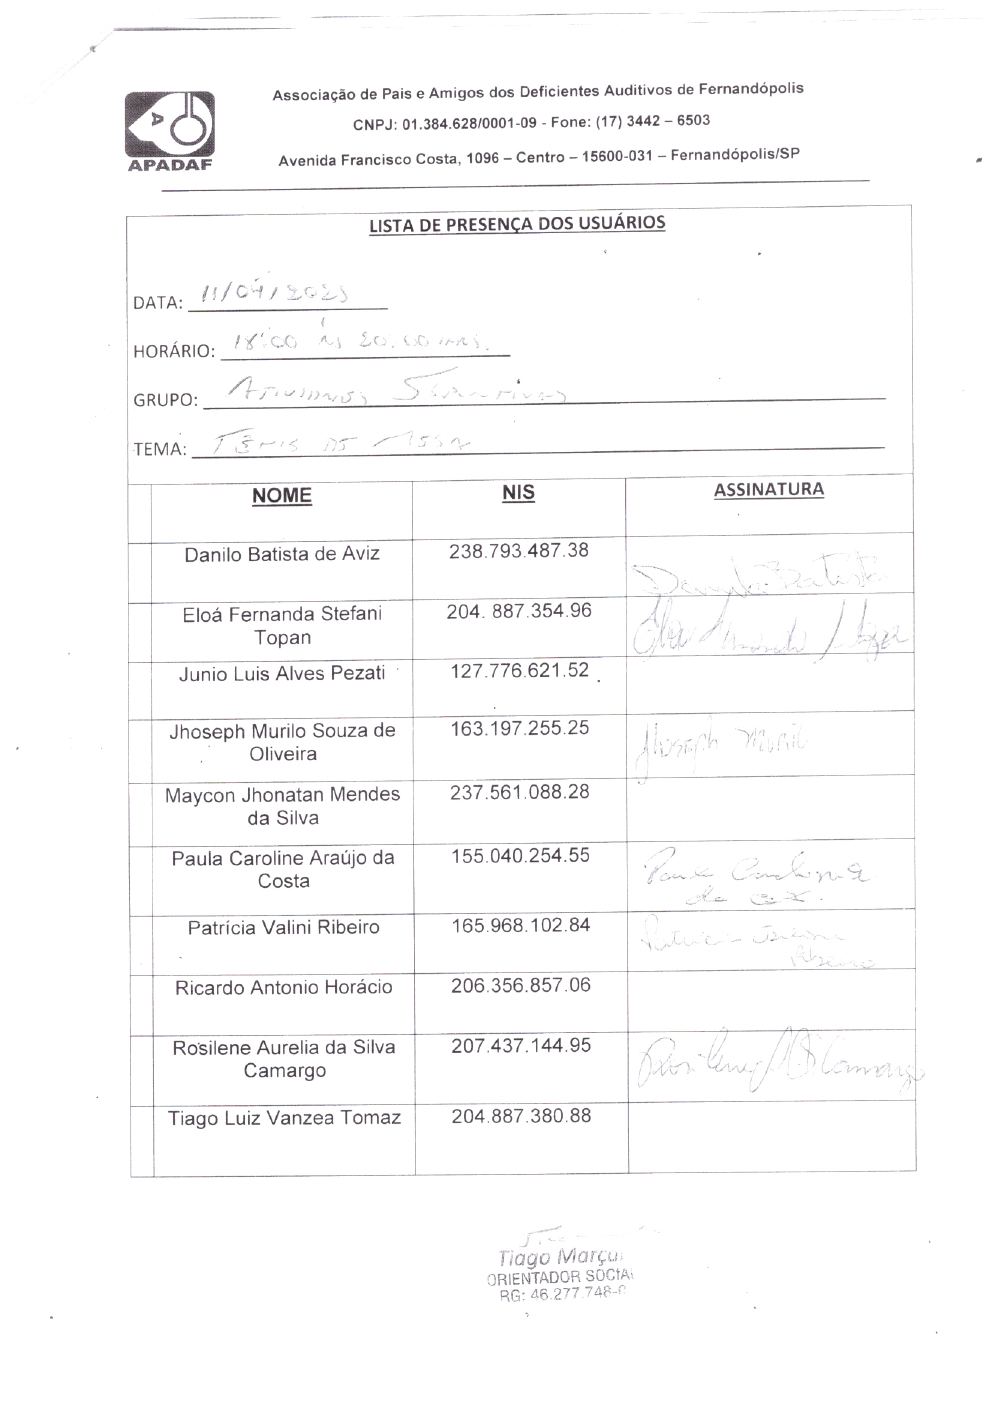 Associação de Pais e Amigos dos Deficientes Auditivos de Fernandópolis
CNPJ: 01.384.628/0001-09 - Fone: (17) 3442 – 6503
APADAF
Avenida Francisco Costa, 1096 – Centro – 15600-031 – Fernandópolis/SP
LISTA DE PRESENÇA DOS USUÁRIOS
DATA: 11/04/2023
HORÁRIO: 18:00 às 20:00 hrs.
GRUPO:
TEMA: Tênis de Mesa
NOME NIS ASSINATURA
Danilo Batista de Aviz 238.793.487.38 Danilo Batista
Eloá Fernanda Stefani 204. 887.354.96 Eloá Fernanda
Topan
Junio Luis Alves Pezati 127.776.621.52
Jhoseph Murilo Souza de 163.197.255.25 Jhoseph Murilo
Oliveira
Maycon Jhonatan Mendes 237.561.088.28
da Silva
Paula Caroline Araújo da 155.040.254.55 Paula Caroline
Costa da
Patrícia Valini Ribeiro 165.968.102.84 Patricia
Ribeiro
Ricardo Antonio Horácio 206.356.857.06
Rosilene Aurelia da Silva 207.437.144.95 Rosilene A S Camargo
Camargo
Tiago Luiz Vanzea Tomaz 204.887.380.88
Tiago Marçu
ORIENTADOR SOCIAL
RG: 46.277.748-